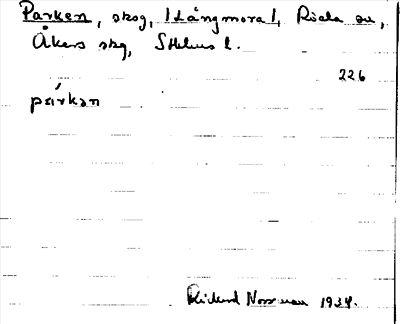 Parken, skog, /Långmora/, Riala sn,
Åkers skg, Sthlms l.
226
párkan
Rickard Norrman 1934.